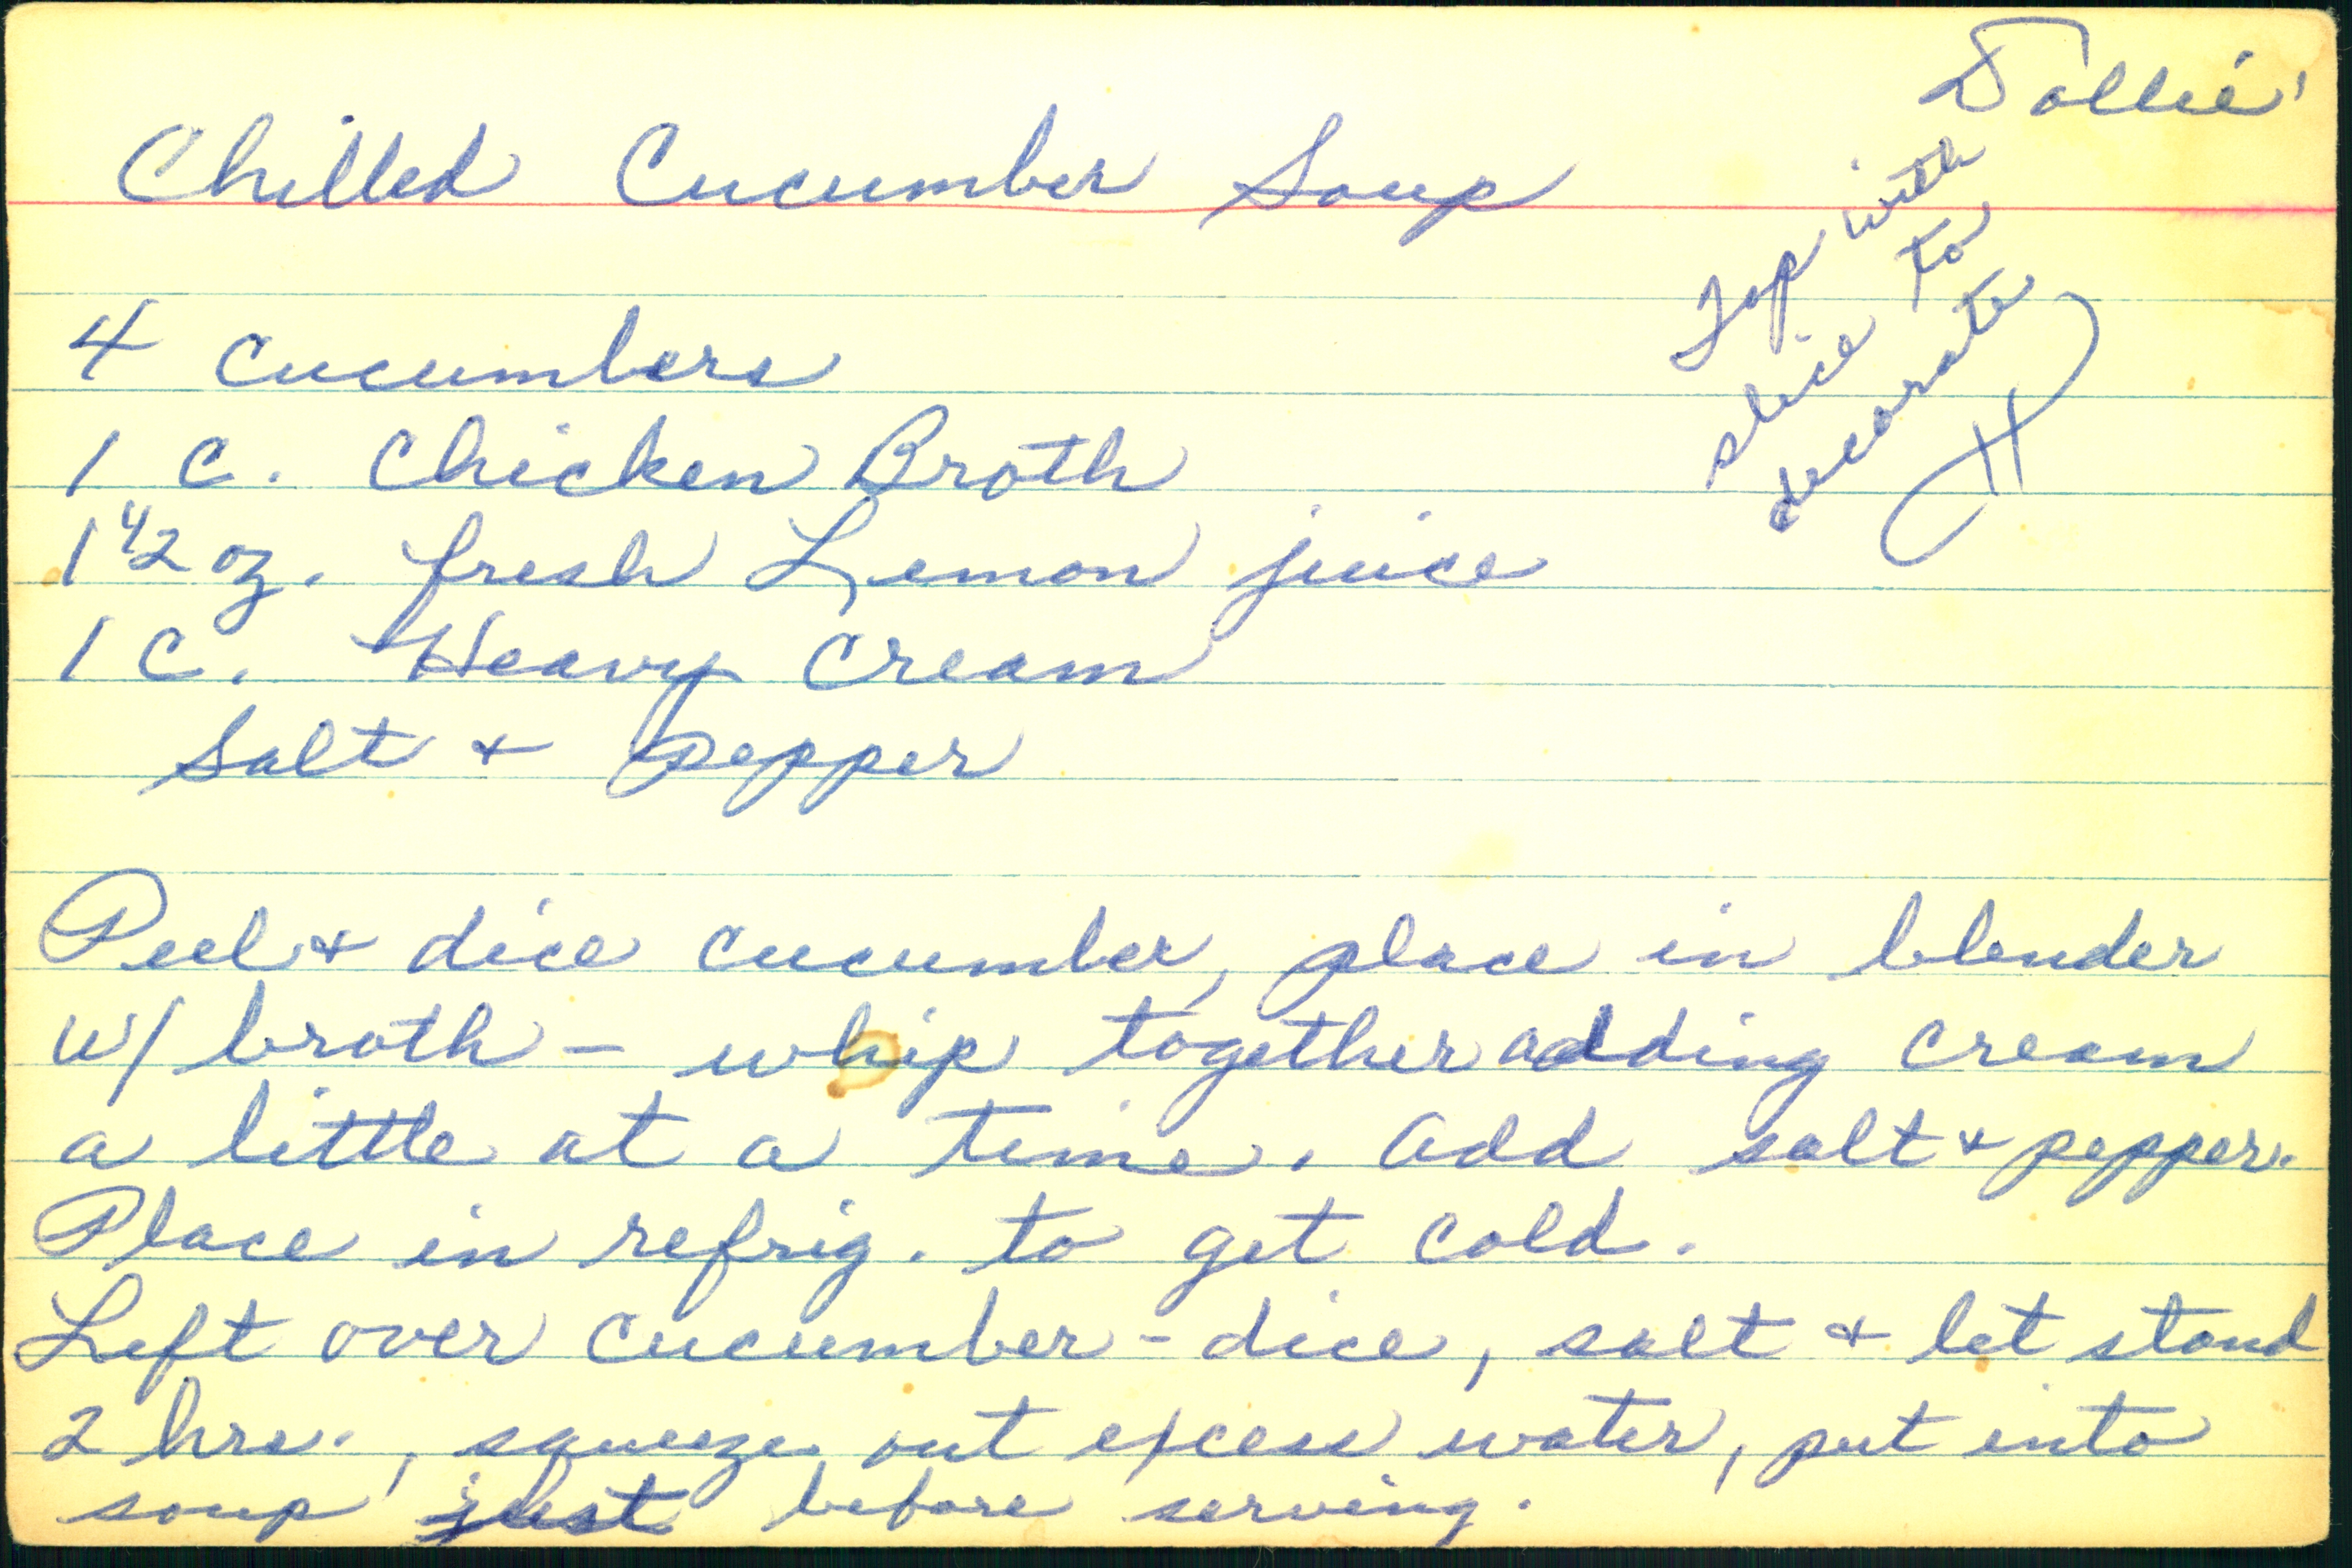 Dollie
Chilled Cucumber Soup
Top with
slice to
decorate
4 cucumbers
1 c. Chicken Broth
1 1/2 oz. fresh Lemon juice
1 c. Heavy Cream
Salt & pepper
Peel & dice cucumber, place in blender
w/ broth - whip together adding cream
a little at a time. Add salt & pepper.
Place in refrig. to get cold.
Left over cucumber - dice, salt & let stand
2 hrs., squeeze out excess water, put into
soup just before serving.